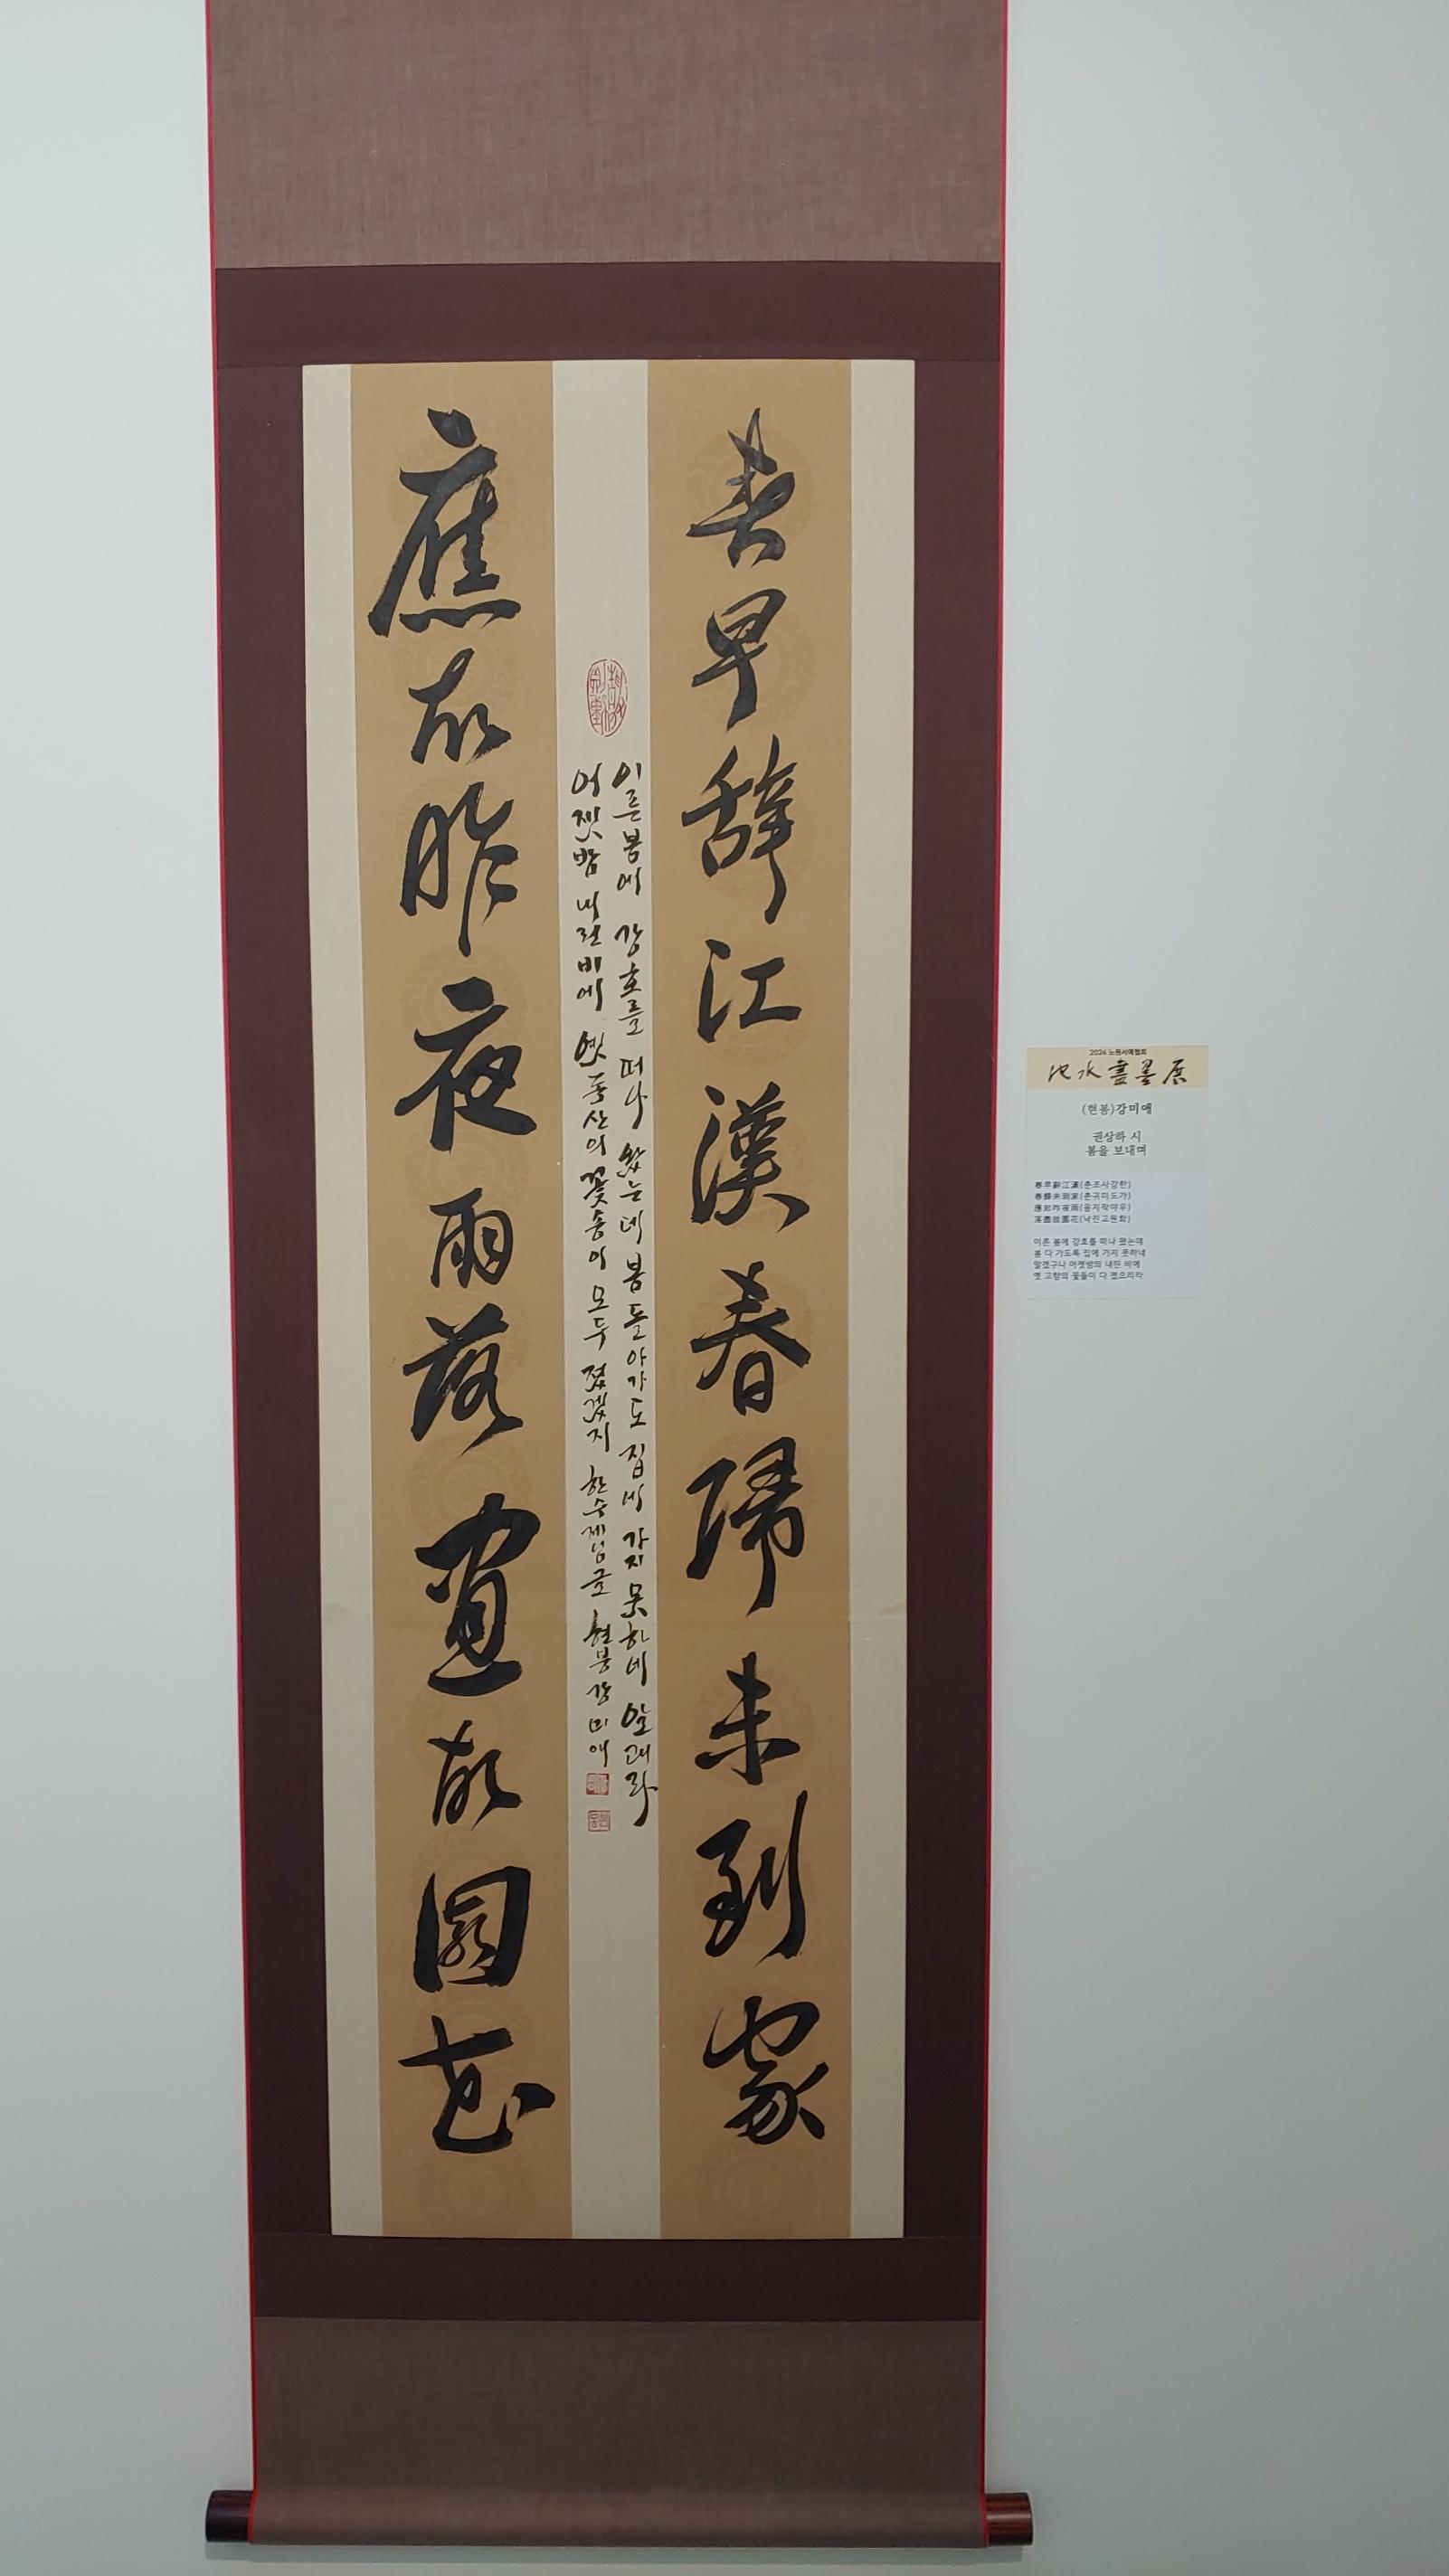 春早辞江漢春歸未到家
이른 봄에 강호를 떠나 왔는데 봄 돌아가도 집에 가지 못하네 알괘라
어젯밤 내린 비에 옛 동산의 꽃송이 모두 졌겠지 한수재님 글 현봉 강미애
應知昨夜雨落盡故園花
2024 노원서예협회
池水盡墨展
(현봉)강미애
권상하 시
봄을 보내며
春早辭江漢(춘조사강한)
春歸未到家(춘귀미도가)
應知昨夜雨(응지작야우)
落盡故園花(낙진고원화)
이른 봄에 강호를 떠나 왔는데
봄 다 가도록 집에 가지 못하네
알겠구나 어젯밤의 내린 비에
옛 고향의 꽃들이 다 졌으리라